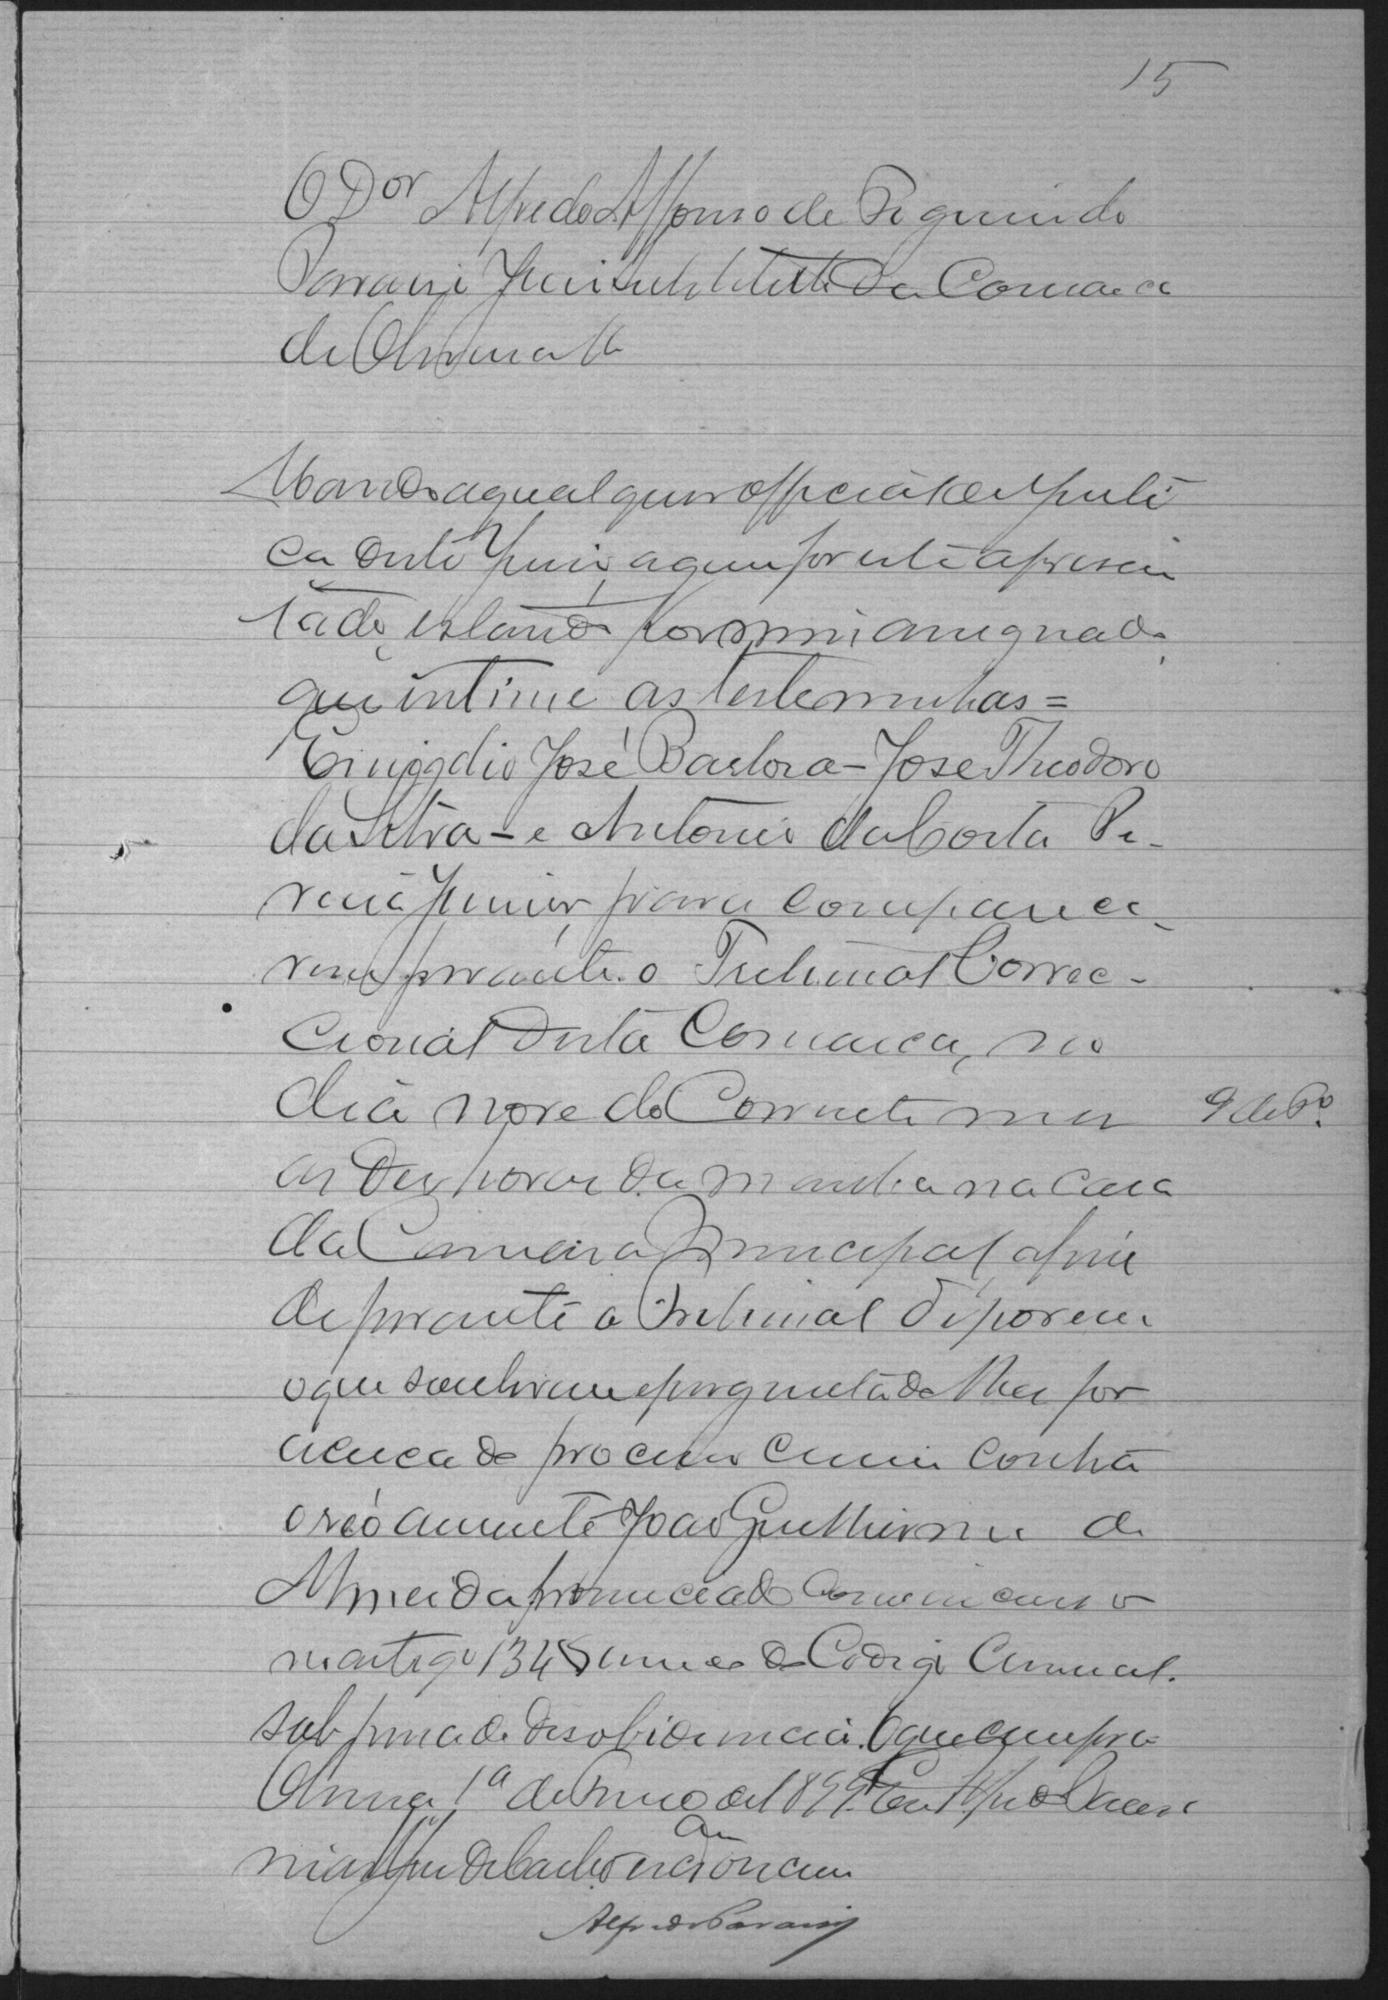 15
O Dor Alfredo Affonso de Figueiredo
Paraizo Juiz Substituto da Comarca
de
Mando a qualquer official de Justi
ca deste Juizo, a quem for este apresen
tado, estando por mim assignado,
que intime as testemunhas =
Emigdio José Barbosa - Jose Theodoro
da Silva - e Antonio da Costa Pe-
reira Junior, para comparece-
rem perante o Tribunal Correc-
cional desta Comarca, no
dia nove do Corrente mez
9 de
as dez horas da manhã na Casa
da Camara Municipal afim
de perante o Tribunal deporem
o que souberem e perguntado lhes for
acerca do processo crime contra
o réo ausente João Guilherme de
Almeida pronunciado como incurso
no artigo 134 do Codigo Criminal.
sob pena de desobidiencia. O que cumpra
1ª de de 1899. Eu
Alfredo Paraizo